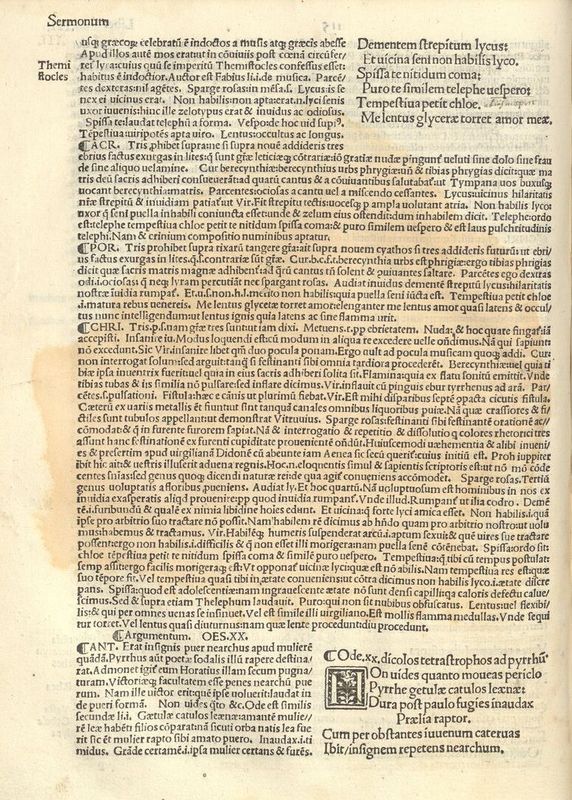 Sermonum
usq; græcoq; celebratũ ẽ indoctos a musis atq; græcis abesse
Apud illos autẽ mos eratut in cõuiuiis post cœnã circũfer/
ret lyra: cuius quũ se imperitũ Themistocles confessus esset
Themi
stocles
habitus ẽ indoctior. Auctor est Fabius li.i.de musica. Parcẽ/
tes dexteras: nil agétes. Sparge rosas: in mésa.s. Lycus: is se
nex ei uicinus erat. Non habilis: non apta: erat.n. lyci senis
uxor iuuenis: hinc ille zelotypus erat & inuidus ac odiosus.
Spissa te: laudat telephũ a forma. Vespo: de hoc uid supi⁹.
Tẽpestiua: uiripotẽs apta uiro. Lentus: occultus ac longus.
Dementem strepitum lycus:
Et uicina seni non habilis lyco.
Spissa te nitidum coma:
Puro te similem telephe uespero:
Tempestiua petit chloe.
Me lentus glyceræ torret amor meæ.
¶ACR. Tris phibet supra: ne si supra nouẽ addideris tres
ebrius factus exurgas in lites: q̃ sunt gĩæ leticieq; cõtrariæ: iõ gratiæ nudæ pingunt̃ ueluti sine dolo sine frau
de sine aliquo uelamine. Cur berecynthiæ: berecynthius urbs phrygiæ: unũ & tibias phrygias dicit: quæ ma
tris deũ sacris adhiberi consueuerãt: ad quarũ cantus & a cõuiuantibus salutabat̃: ut Tympana uos buxusq;
uocant berecynthia matris. Parcentes: ociosas a cantu uel a missendo cessantes. Lycus: uicinus hilaritatis
niæ strepitũ & inuidiam patiat̃: ut Vir. Fit strepitu tectis: uocesq; p ampla uolutant atria. Non habilis lyco
uxor q̃ seni puella inhabili coniuncta esset: unde & zelum eius oftẽdit: dum inhabilem dicit. Telephe: ordo
est: telephe tempestiua chloe petit te nitidum spissa coma: & puro similem uespero & est laus pulchritudinis
telephi. Nam & crinium compositio numinibus aptatur.
¶POR. Tris prohibet supra rixarũ tangere gĩa: ait supra nouem cyathos si tres addideris futurũ ut ebri/
us factus exurgas in lites.q.s.contrariæ sũt gĩæ. Cur.b.c.f.berecynthia urbs est phrigiæ: ergo tibias phrigias
dicit: quæ sacris matris magnæ adhibent̃: sad q̃rũ cantus tñ solent & puiuantes saltare. Parcẽtes ego dextras
odi.i.ociosas: q̃ neq; lyram percutiãt nec spargant rosas. Audiat inuidus dementẽ strepitũ lycus: hilaritatis
nostræ iuidia rumpat̃. Et.u.s.non.h.l.mecito non habilis: quia puella seni iũcta est. Tempestiua petit chloe
.i.matura rebus uenereis. Me lentus glyceræ torret amore: lenganter me lentus amor quasi latens & occul/
tus nunc intelligendum: ut lentus ignis quia latens ac sine flamma urit.
¶CHRI. Tris.p.s.nam gĩæ tres suntut iam dixi. Metuens.r.pp ebrietatem. Nudæ: & hoc quate fingãt̃ iiã
accepisti. Insanire iu. Modus loquendi est: cũ modum in aliqua re excedere uelle oñdimus. Nã qui sapiunt
nõ excedunt. Sic Vir. insanire libet qm̃ duo pocula ponam. Ergo nult ad pocula musicam quoq; addi. Cur:
non interrogat solum: sed arguit: tanq̃ si festinanti sibi omnia tardiora procederẽt. Berecynthiæ: uel quia ti
biæ ipsa inuentrix fuerit: uel quia in eius sacris adhiberi solita sit. Flamina: quia ex flatu sonitũ emittit. Vnde
tibias tubas & iis similia nõ pulsare: sed inflare dicimus. Vir. inflauit cũ pinguis ebur tyrrhenus ad arã. Par/
cẽtes.s. pulsationi. Fistula: hæc e cãnis ut plurimũ fiebat. Vir. Est mihi disparibus septẽ cpacta cicutis fistula.
Cæterũ ex uariis metallis ẽt fiuntut sint tanquã canales omnibus liquoribus puiæ. Nã quæ crassiores & fi/
ctiles sunt tubulos appellantut demonstrat Vitruuius. Sparge rosas: festinãti sibi festinante orationẽ ac/
cõmodat: & q̃ in furente furorem sapiat. Nã & interrogatio & repetitio & dissolutio q̃ colores rhetorici tres
assunt hanc festinatiõne ex furenti cupiditate prouenientẽ oñdũt. Huiuscemodi uæhementia & alibi inueni/
es & presertim apud uirgilianã Didonẽ cũ abeunte iam Aenea sic secũ querit̃: cuius initiũ est. Proh iuppiter
ibit hic ait: & uestris illuserit aduena regnis. Hoc.n. eloquentis simul & sapientis scriptoris est: ut nõ mõ cõde
centes sñias: sed genus quoq; dicendi naturæ reide qua agit̃ conueniens accõmodet. Sparge rosas. Tertiũ
genus uoluptatis a floribus. p ueniens. Audiat ly. Et hoc quartũ. Nã uoluptuosum est hominibus in nos ex
inuidia exasperatis aliqd̃ prouenire: pp quod inuidia rumpant̃. Vnde illud. Rumpant̃ ut ilia codro. Demẽ
tẽ.i. furibundũ & qualẽ ex nimia libidine hoĩes edunt. Et uicina: q̃ forte lyci amica esset. Non habilis.i. quã
ipse pro arbitrio suo tractare nõ possit. Nam habilem rẽ dicimus ab hñdo quam pro arbitrio nostro: ut uolu
mus: habemus & tractamus. Vir. Habilẽq; humeris suspenderat arcũ.i. aptum sexui: & quẽ uires suæ tractare
possent: ergo non habilis.i. difficilis & q̃ non esset illi morigera: nam puella senẽ cõtẽnebat. Spissa: ordo sit:
chloe tẽpestiua petit te nitidum spissa coma & similẽ puro uespero. Tempestiua: q̃ tibi cũ tempus postulat:
semp assit: ergo facilis morigeraq; est: Vt opponat̃ uicinæ lyci: quæ est nõ abilis. Nam tempestiua res est: quæ
suo tẽpore fit. Vel tempestiua quasi tibi inætate conueniens: ut cõtra dicimus non habilis lyco.i. ætate discre
pans. Spissa: quod est adolescentiæ: nam ingrauescente ætate nõ sunt densi capilli: qa caloris defectu calue/
scimus. Sed & supra etiam Thelephum laudauit. Puro: qui non sit nubibus obfuscatus. Lentus: uel flexibi/
lis: & qui per omnes uenas se insinuet. Vel est simile illi uirgiliano. Est mollis flamma medullas. Vnde sequi
tur torret. Vel lentus quasi diuturnus: nam quæ lente procedũt: diu procedunt.
¶Argumentum. OES.XX.
¶ANT. Erat insignis puer nearchus apud mulierẽ
quãdã. Pyrrhus aũt poetæ sodalis illũ rapere destina/
rat. Admonet igit̃ eum Horatius illam secum pugna/
turam. Victoriæq; facultatem esse penes nearchũ pue
rum. Nam ille victor eritquẽ ipse uoluerit: laudat in
de pueri formã. Non uides q̃to &c. Ode est similis
secundæ li.i. Gætulæ catulos leænæ: amantẽ mulie//
rẽ leæ habẽti filios cõparat: nã sicuti orba natis lea fue
rit sic ẽt mulier rapto sibi amato puero. Inaudax.i. ti
midus. Grãde certamẽ.i. ipsa mulier certans & furẽs.
¶Ode.xx. dicolos tetrastrophos ad pyrrhũ
NOn uides quanto moueas periclo
Pyrrhe getulæ catulos leænæ:
Dura post paulo fugies inaudax
Prælia raptor.
Cum per obstantes iuuenum cateruas
Ibit/insignem repetens nearchum.